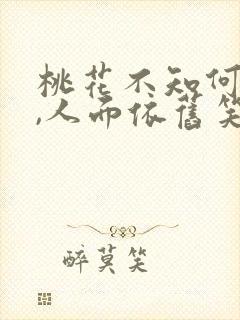 桃花不知何
,人而依舊笑
醉莫笑